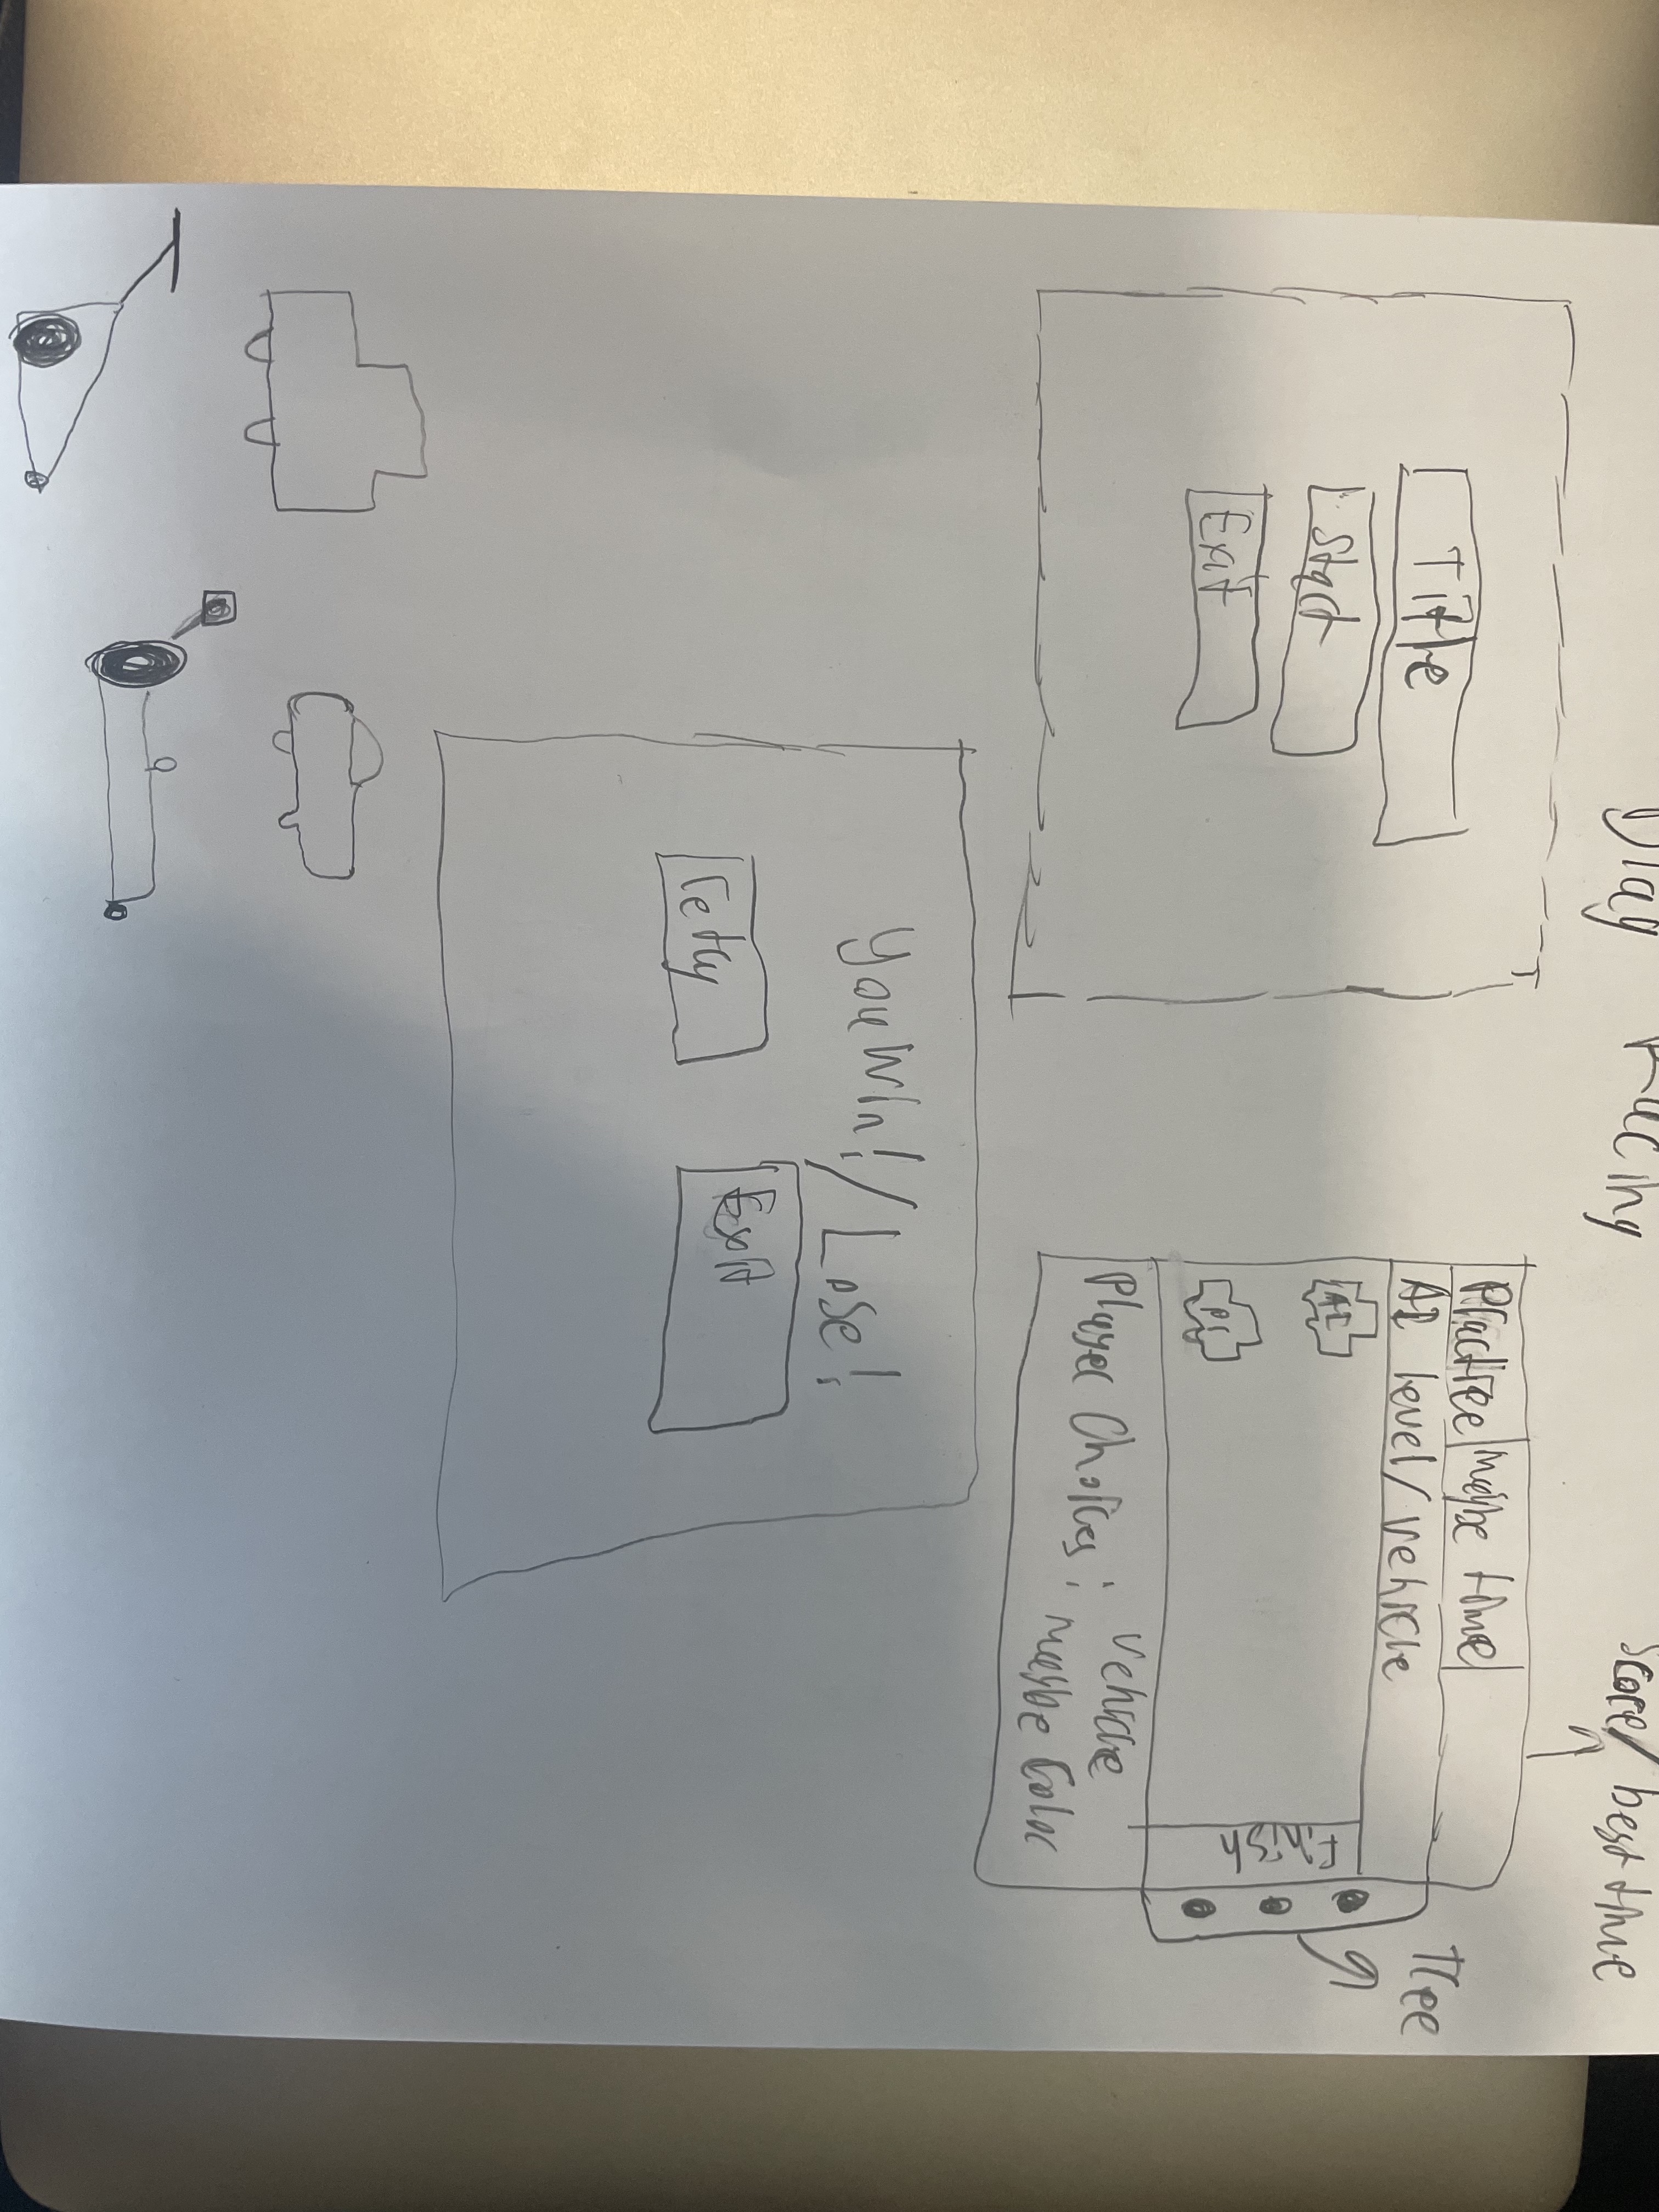 Drag Racing
Score/best time
Title
Start
Exit
Practice
maybe time
AI level/vehicle
AI
P1
Finish
Tree
Player Choices: vehicle
maybe Color
You Win!/Lose!
retry
Exit